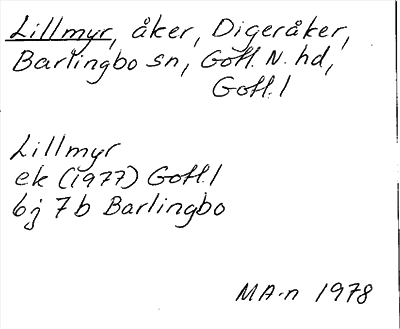 Lillmyr, åker, Digeråker,
Barlingbo sn, Gotl. N. hd,
Gotl. l
Lillmyr
ek (1977) Gotl. l
6j 7b Barlingbo
MA-n 1978